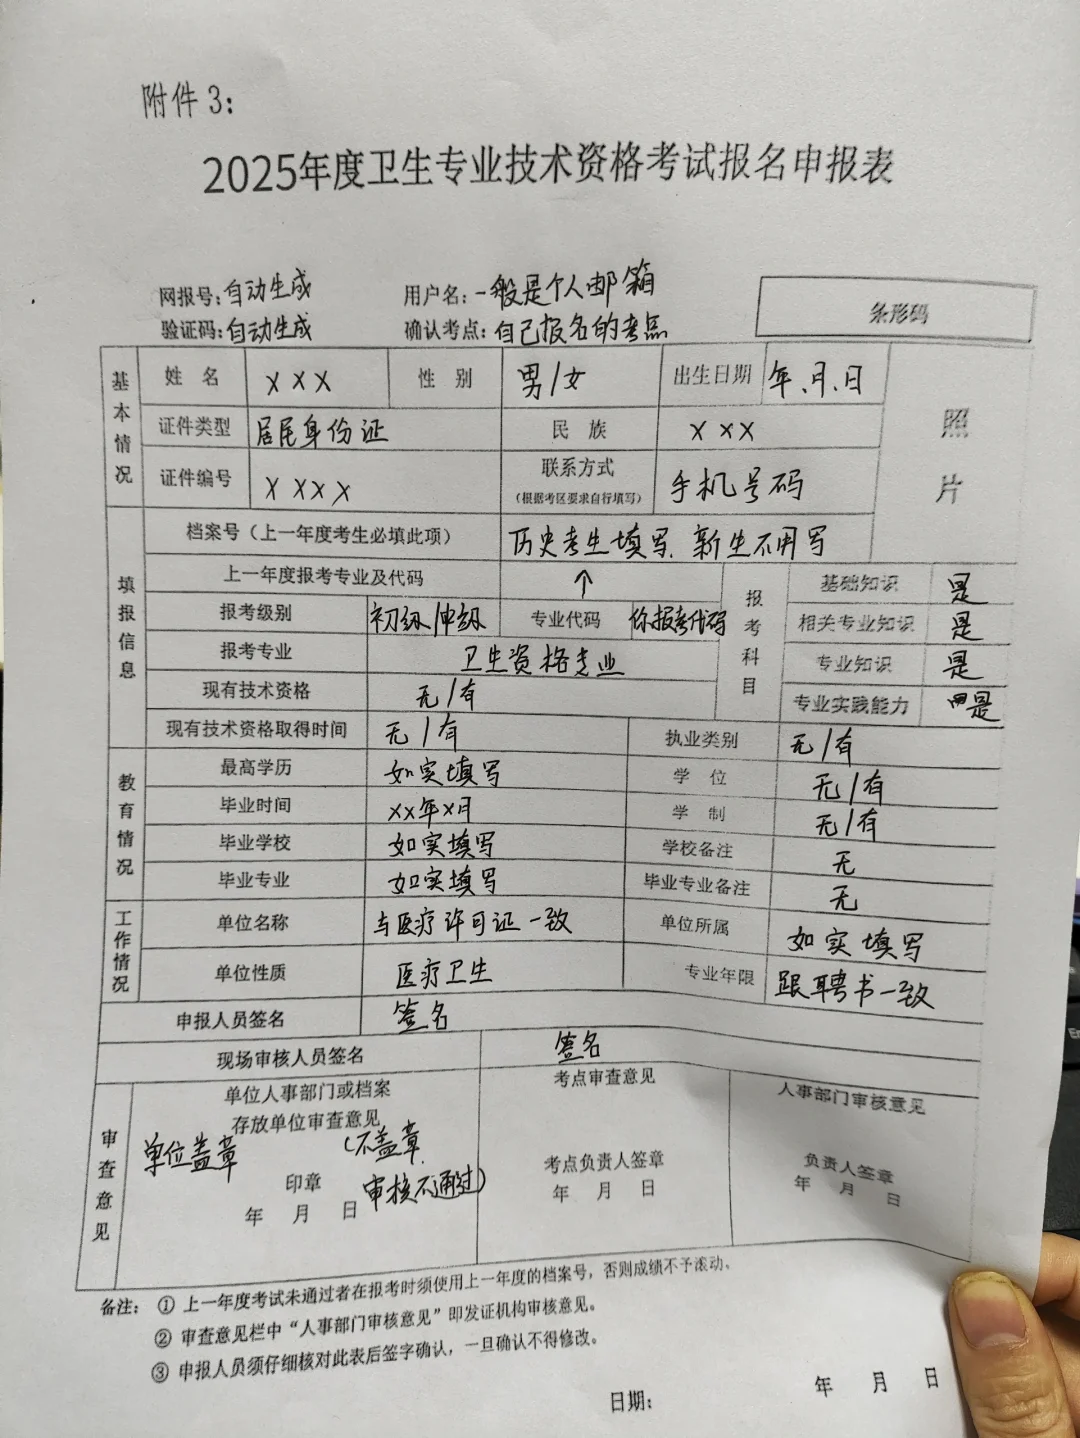 附件 3：
2025年度卫生专业技术资格考试报名申报表
网报号：自动生成 用户名：一般是个人邮箱
验证码：自动生成 确认考点：自己报名的考点
条形码
基本情况
姓 名 XXX 性 别 男/女 出生日期 年、月、日
照片
证件类型 居民身份证 民 族 XXX
证件编号 XXXX 联系方式（根据考区要求自行填写） 手机号码
填报信息
档案号（上一年度考生必填此项） 历史考生填写、新生不用写
上一年度报考专业及代码 ↑
报考级别 初级/中级 专业代码 你报考代码
报考专业 卫生资格专业
现有技术资格 无/有
现有技术资格取得时间 无/有
报考科目
基础知识 是
相关专业知识 是
专业知识 是
专业实践能力 是
执业类别 无/有
教育情况
最高学历 如实填写 学 位 无/有
毕业时间 XX年X月 学 制 无/有
毕业学校 如实填写 学校备注 无
毕业专业 如实填写 毕业专业备注 无
工作情况
单位名称 与医疗许可证一致 单位所属 如实填写
单位性质 医疗卫生 专业年限 跟聘书一致
申报人员签名 签名
现场审核人员签名 签名
审查意见
单位人事部门或档案
存放单位审查意见
单位盖章（不盖章
审核不通过）
印章
年 月 日
考点审查意见
考点负责人签章
年 月 日
人事部门审核意见
负责人签章
年 月 日
备注：① 上一年度考试未通过者在报考时须使用上一年度的档案号，否则成绩不予滚动。
② 审查意见栏中“人事部门审核意见”即发证机构审核意见。
③ 申报人员须仔细核对此表后签字确认，一旦确认不得修改。
日期： 年 月 日